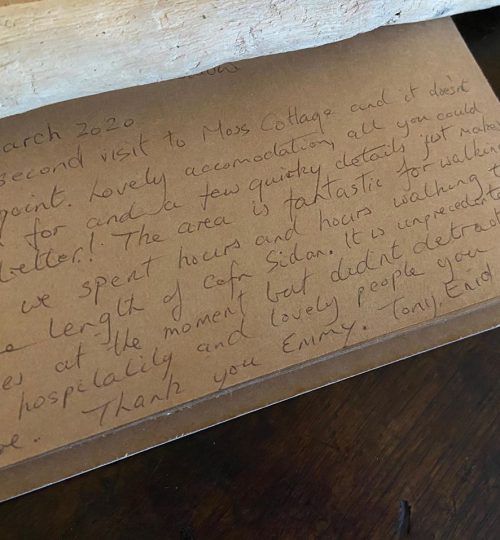 arch 2020
second visit to Moss Cottage and it doesn't
point. Lovely accomodation, all you could
for and a few quirky details just makes
better! The area is fantastic for walking
we spent hours and hours walking t
length of cefn Sidan. It is unprecedente
es at the moment but didn't detract
hospitality and lovely people you
e. Thank you Emmy. Tony, Enid